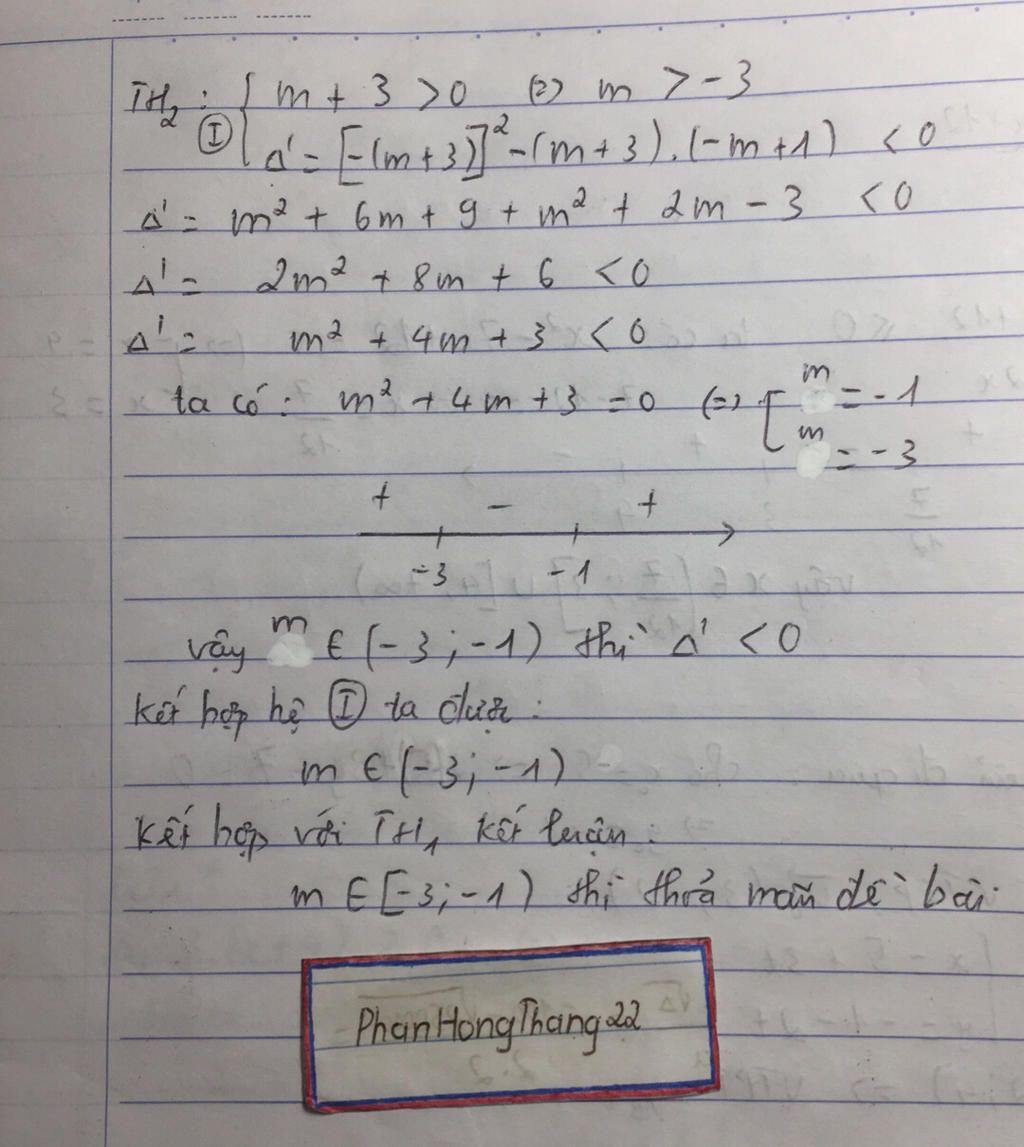 TH₂: { m + 3 > 0 (=) m > -3
Ⓘ Δ' = [-(m+3)]² - (m+3).(-m+1) < 0
Δ' = m² + 6m + 9 + m² + 2m - 3 < 0
Δ' = 2m² + 8m + 6 < 0
Δ' = m² + 4m + 3 < 0
ta có: m² + 4m + 3 = 0 (=) [ m = -1
m = -3
+ - +
-3 -1
vậy m ∈ (-3; -1) thì Δ' < 0
kết hợp hệ Ⓘ ta được:
m ∈ (-3; -1)
kết hợp với TH₁ kết luận:
m ∈ [-3; -1) thì thoả mãn đề bài
PhanHongThang22